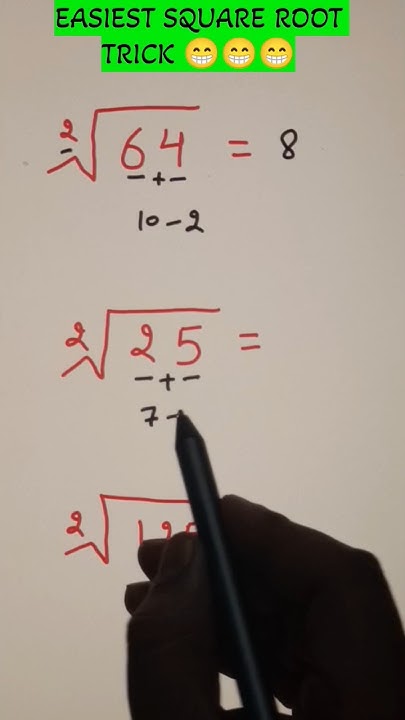 EASIEST SQUARE ROOT
TRICK 😁😁😁
2√64 = 8
− + −
10 − 2
2√25 =
− + −
7 −
2√12